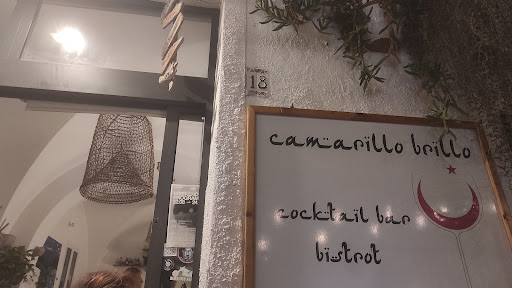 18
camarillo brillo
cocktail bar
bistrot